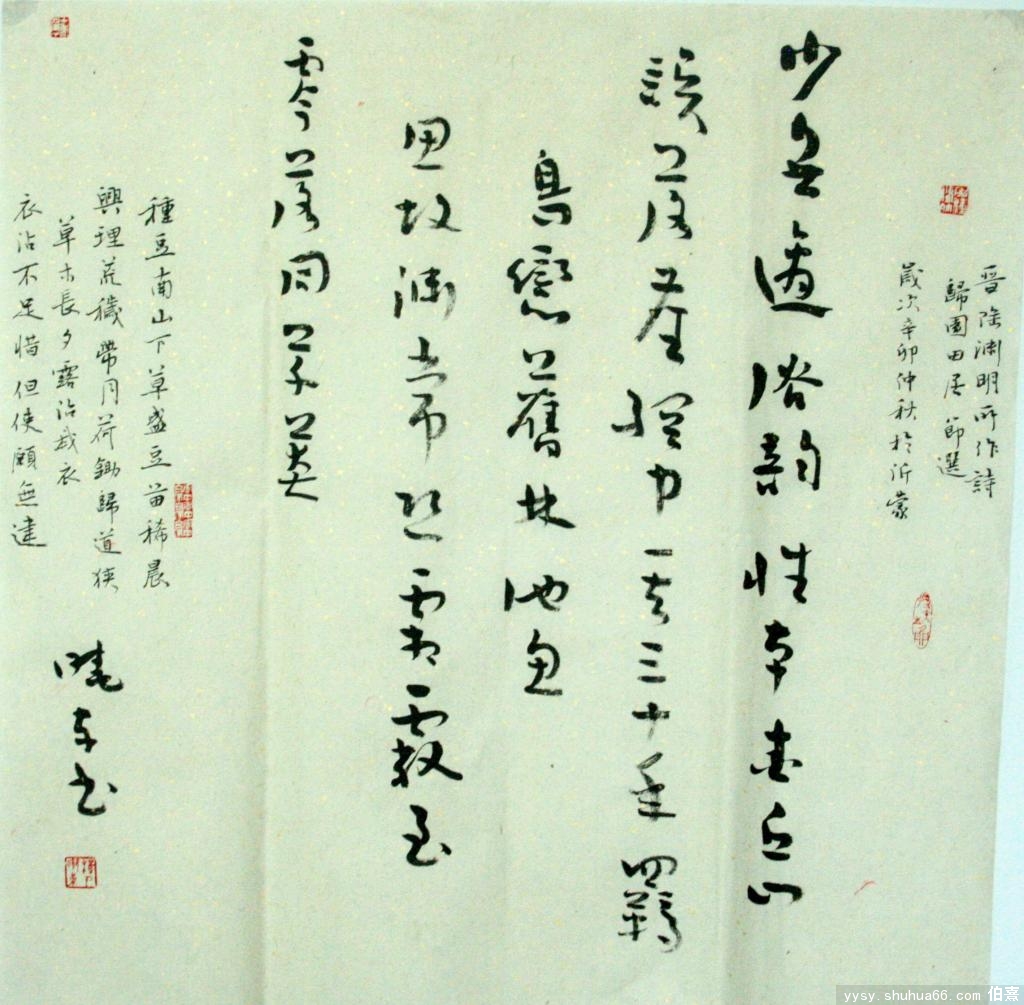 晉陶渊明所作詩
歸園田居節選
歲次辛卯仲秋於沂蒙
少無適俗韵性本爱丘山
誤落塵網中一去三十年羁
鳥戀舊林池魚
思故渊常恐霜霰至
零落同草莽
種豆南山下草盛豆苗稀晨
興理荒穢帶月荷鋤歸道狹
草木長夕露沾我衣
衣沾不足惜但使願無違
曉东书
yysy.shuhua66.com 伯熹